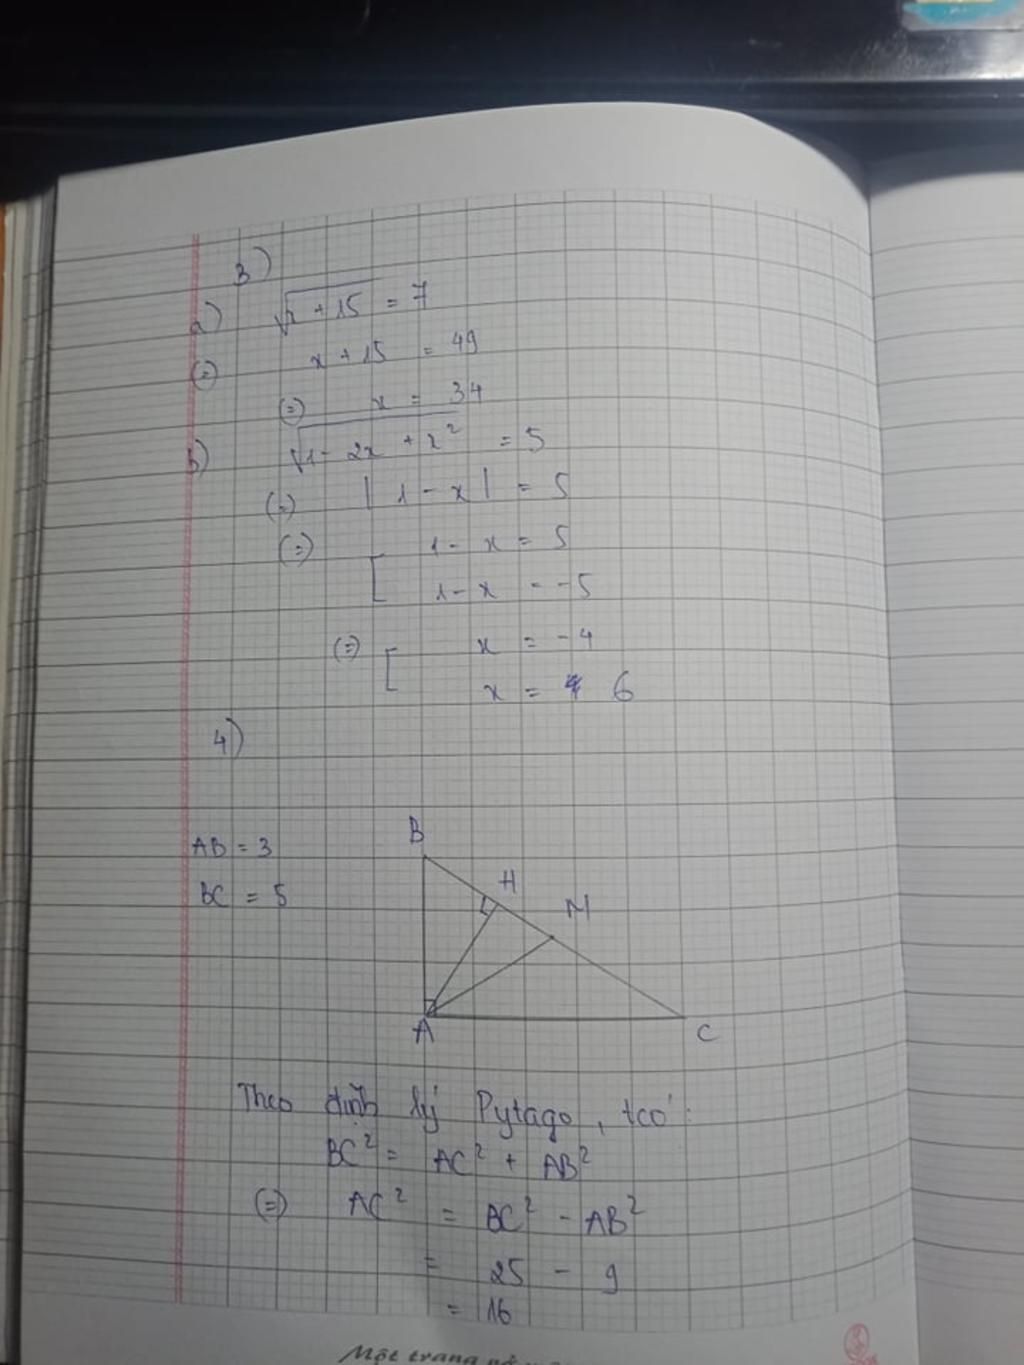 3)
a) √x + 15 = 7
(=) x + 15 = 49
(=) x = 34
b) √1 - 2x + x² = 5
(=) |1 - x| = 5
(=) [ 1 - x = 5
1 - x = -5
(=) [ x = -4
x = 6
4)
AB = 3
BC = 5
B
H
M
A
C
Theo định lý Pytago, tcó:
BC² = AC² + AB²
(=) AC² = BC² - AB²
= 25 - 9
= 16
Một trang